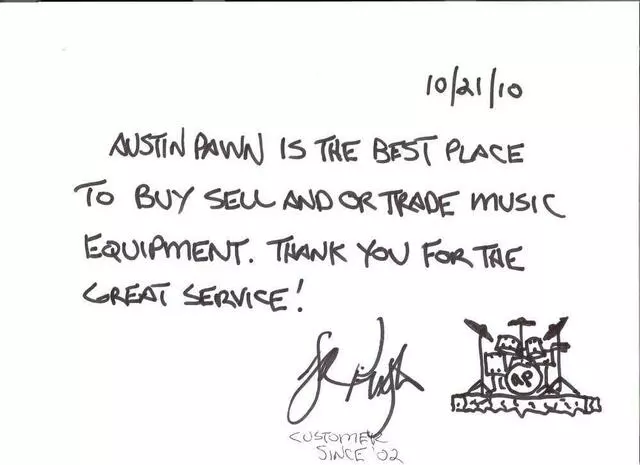 10/21/10
AUSTIN PAWN IS THE BEST PLACE
TO BUY SELL AND OR TRADE MUSIC
EQUIPMENT. THANK YOU FOR THE
GREAT SERVICE!
AP
CUSTOMER
SINCE '02